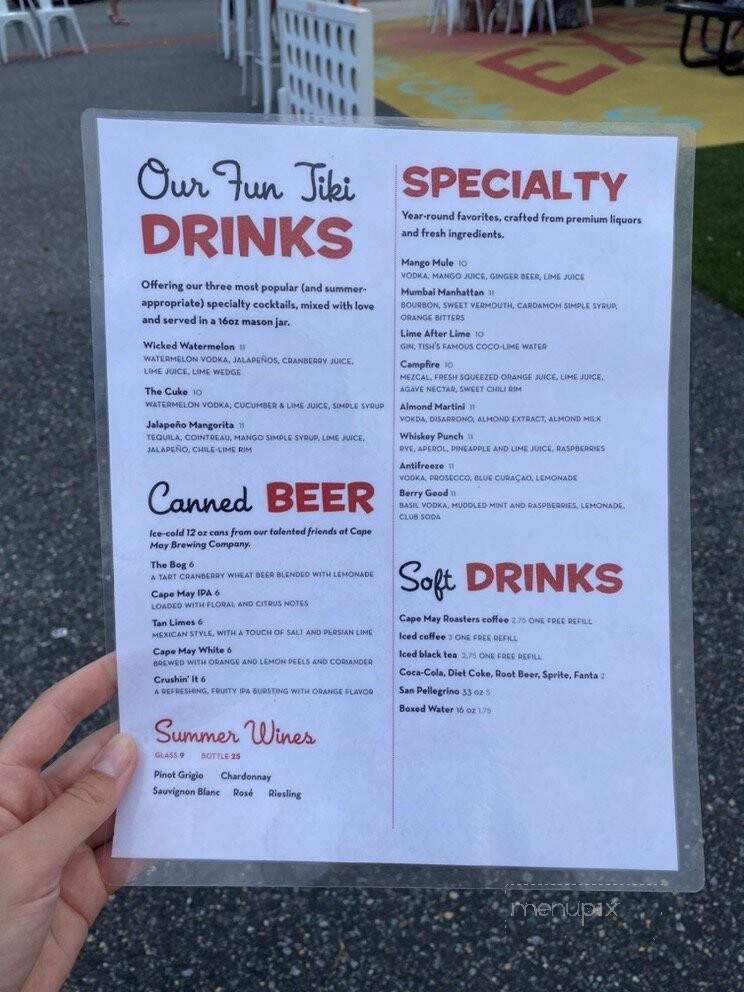 Our Fun Tiki
DRINKS
Offering our three most popular (and summer-
appropriate) specialty cocktails, mixed with love
and served in a 16oz mason jar.
Wicked Watermelon 11
WATERMELON VODKA, JALAPEÑOS, CRANBERRY JUICE,
LIME JUICE, LIME WEDGE
The Cuke 10
WATERMELON VODKA, CUCUMBER & LIME JUICE, SIMPLE SYRUP
Jalapeño Mangorita 11
TEQUILA, COINTREAU, MANGO SIMPLE SYRUP, LIME JUICE,
JALAPEÑO, CHILE-LIME RIM
Canned BEER
Ice-cold 12 oz cans from our talented friends at Cape
May Brewing Company.
The Bog 6
A TART CRANBERRY WHEAT BEER BLENDED WITH LEMONADE
Cape May IPA 6
LOADED WITH FLORAL AND CITRUS NOTES
Tan Limes 6
MEXICAN STYLE, WITH A TOUCH OF SALT AND PERSIAN LIME
Cape May White 6
BREWED WITH ORANGE AND LEMON PEELS AND CORIANDER
Crushin' It 6
A REFRESHING, FRUITY IPA BURSTING WITH ORANGE FLAVOR
Summer Wines
GLASS 9 BOTTLE 25
Pinot Grigio Chardonnay
Sauvignon Blanc Rosé Riesling
SPECIALTY
Year-round favorites, crafted from premium liquors
and fresh ingredients.
Mango Mule 10
VODKA, MANGO JUICE, GINGER BEER, LIME JUICE
Mumbai Manhattan 11
BOURBON, SWEET VERMOUTH, CARDAMOM SIMPLE SYRUP,
ORANGE BITTERS
Lime After Lime 10
GIN, TISH'S FAMOUS COCO-LIME WATER
Campfire 10
MEZCAL, FRESH SQUEEZED ORANGE JUICE, LIME JUICE,
AGAVE NECTAR, SWEET CHILI RIM
Almond Martini 11
VOKDA, DISARRONO, ALMOND EXTRACT, ALMOND MILK
Whiskey Punch 11
RYE, APEROL, PINEAPPLE AND LIME JUICE, RASPBERRIES
Antifreeze 11
VODKA, PROSECCO, BLUE CURAÇAO, LEMONADE
Berry Good 11
BASIL VODKA, MUDDLED MINT AND RASPBERRIES, LEMONADE,
CLUB SODA
Soft DRINKS
Cape May Roasters coffee 2.75 ONE FREE REFILL
Iced coffee 3 ONE FREE REFILL
Iced black tea 2.75 ONE FREE REFILL
Coca-Cola, Diet Coke, Root Beer, Sprite, Fanta 2
San Pellegrino 33 oz 5
Boxed Water 16 oz 1.75
menupix